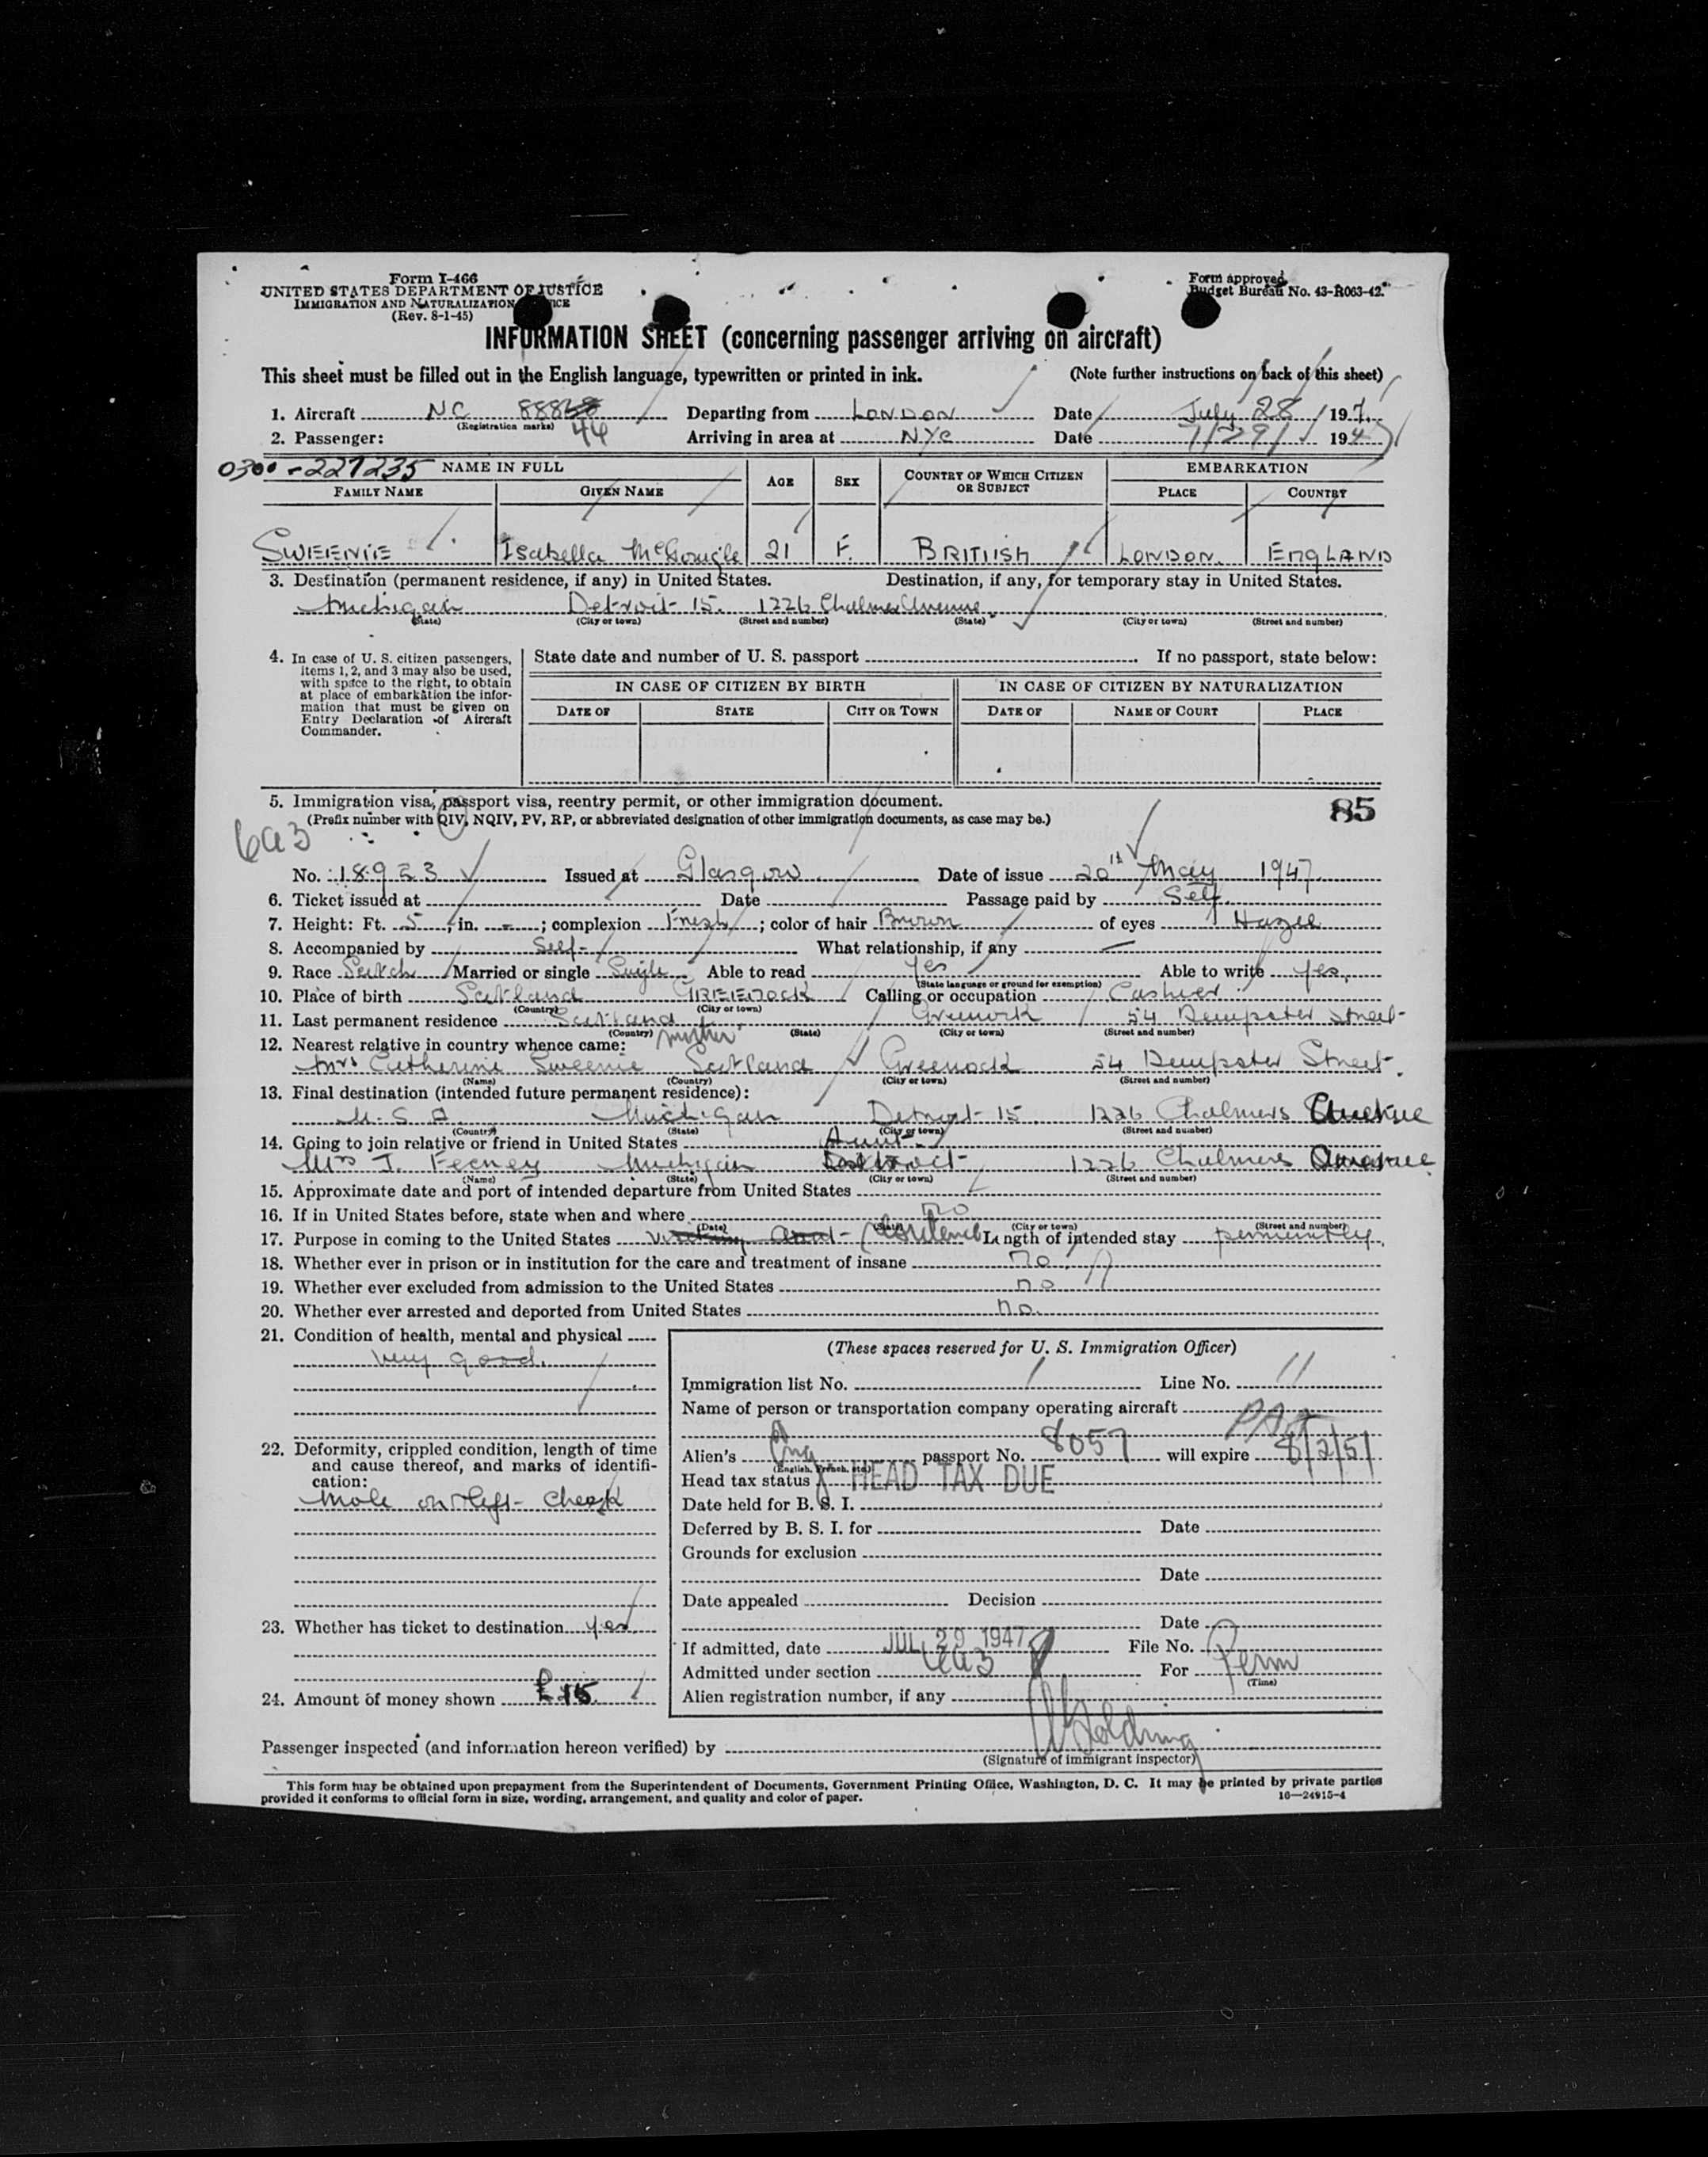 Form I-466
UNITED STATES DEPARTMENT OF JUSTICE
IMMIGRATION AND NATURALIZATION
(Rev. 8-1-45)
Form approved.
Budget Bureau No. 43-R063-42.
INFORMATION SHEET (concerning passenger arriving on aircraft)
This sheet must be filled out in the English language, typewritten or printed in ink. (Note further instructions on back of this sheet)
1. Aircraft NC 888 44 Departing from LONDON Date July 28 1947
(Registration marks)
2. Passenger: Arriving in area at NYC Date 7/29/ 1947
0300-227235 NAME IN FULL AGE SEX COUNTRY OF WHICH CITIZEN OR SUBJECT EMBARKATION
FAMILY NAME GIVEN NAME PLACE COUNTRY
SWEENIE Isabella 21 F. BRITIISH LONDON. ENGLAND
3. Destination (permanent residence, if any) in United States. Destination, if any, for temporary stay in United States.
Michigan Detroit 15. 1226 Chalmers Avenue
(State) (City or town) (Street and number) (State) (City or town) (Street and number)
4. In case of U. S. citizen passengers, items 1, 2, and 3 may also be used, with space to the right, to obtain at place of embarkation the information that must be given on Entry Declaration of Aircraft Commander.
State date and number of U. S. passport If no passport, state below:
IN CASE OF CITIZEN BY BIRTH IN CASE OF CITIZEN BY NATURALIZATION
DATE OF STATE CITY OR TOWN DATE OF NAME OF COURT PLACE
5. Immigration visa, passport visa, reentry permit, or other immigration document. 85
(Prefix number with QIV, NQIV, PV, RP, or abbreviated designation of other immigration documents, as case may be.)
6a3
No. 18923 Issued at Glasgow Date of issue 20th May 1947
6. Ticket issued at Date Passage paid by Self.
7. Height: Ft. 5 in. - ; complexion Fresh ; color of hair Brown of eyes Hazel
8. Accompanied by Self- What relationship, if any —
9. Race Scotch Married or single Single Able to read Yes Able to write Yes.
(State language or ground for exemption)
10. Place of birth Scotland GREENOCK Calling or occupation Cashier
(Country) (City or town)
11. Last permanent residence Scotland Greenock 54 Dempster Street
(Country) (State) (City or town) (Street and number)
12. Nearest relative in country whence came: mother
Mrs Catherine Sweenie Scotland Greenock 54 Dempster Street.
(Name) (Country) (City or town) (Street and number)
13. Final destination (intended future permanent residence):
U.S.A. Michigan Detroit 15 1226 Chalmers Avenue
(Country) (State) (City or town) (Street and number)
14. Going to join relative or friend in United States Aunt.
Mrs J. Feeney Michigan Detroit 1226 Chalmers Avenue
(Name) (State) (City or town) (Street and number)
15. Approximate date and port of intended departure from United States
16. If in United States before, state when and where no
(Date) (State) (City or town) (Street and number)
17. Purpose in coming to the United States Residence Length of intended stay permanently.
18. Whether ever in prison or in institution for the care and treatment of insane no
19. Whether ever excluded from admission to the United States no
20. Whether ever arrested and deported from United States no.
21. Condition of health, mental and physical
very good.
22. Deformity, crippled condition, length of time and cause thereof, and marks of identification:
Mole on left cheek
23. Whether has ticket to destination yes
24. Amount of money shown £15
(These spaces reserved for U. S. Immigration Officer)
Immigration list No. 1 Line No. 11
Name of person or transportation company operating aircraft PAA
Alien's Eng passport No. 8057 will expire 8/2/51
(English, French, etc.)
Head tax status HEAD TAX DUE
Date held for B. S. I.
Deferred by B. S. I. for Date
Grounds for exclusion
Date
Date appealed Decision
Date
If admitted, date JUL 29 1947 File No.
Admitted under section 6a3 For Perm
(Time)
Alien registration number, if any
Passenger inspected (and information hereon verified) by
(Signature of immigrant inspector)
This form may be obtained upon prepayment from the Superintendent of Documents, Government Printing Office, Washington, D. C. It may be printed by private parties
provided it conforms to official form in size, wording, arrangement, and quality and color of paper. 16—24915-4